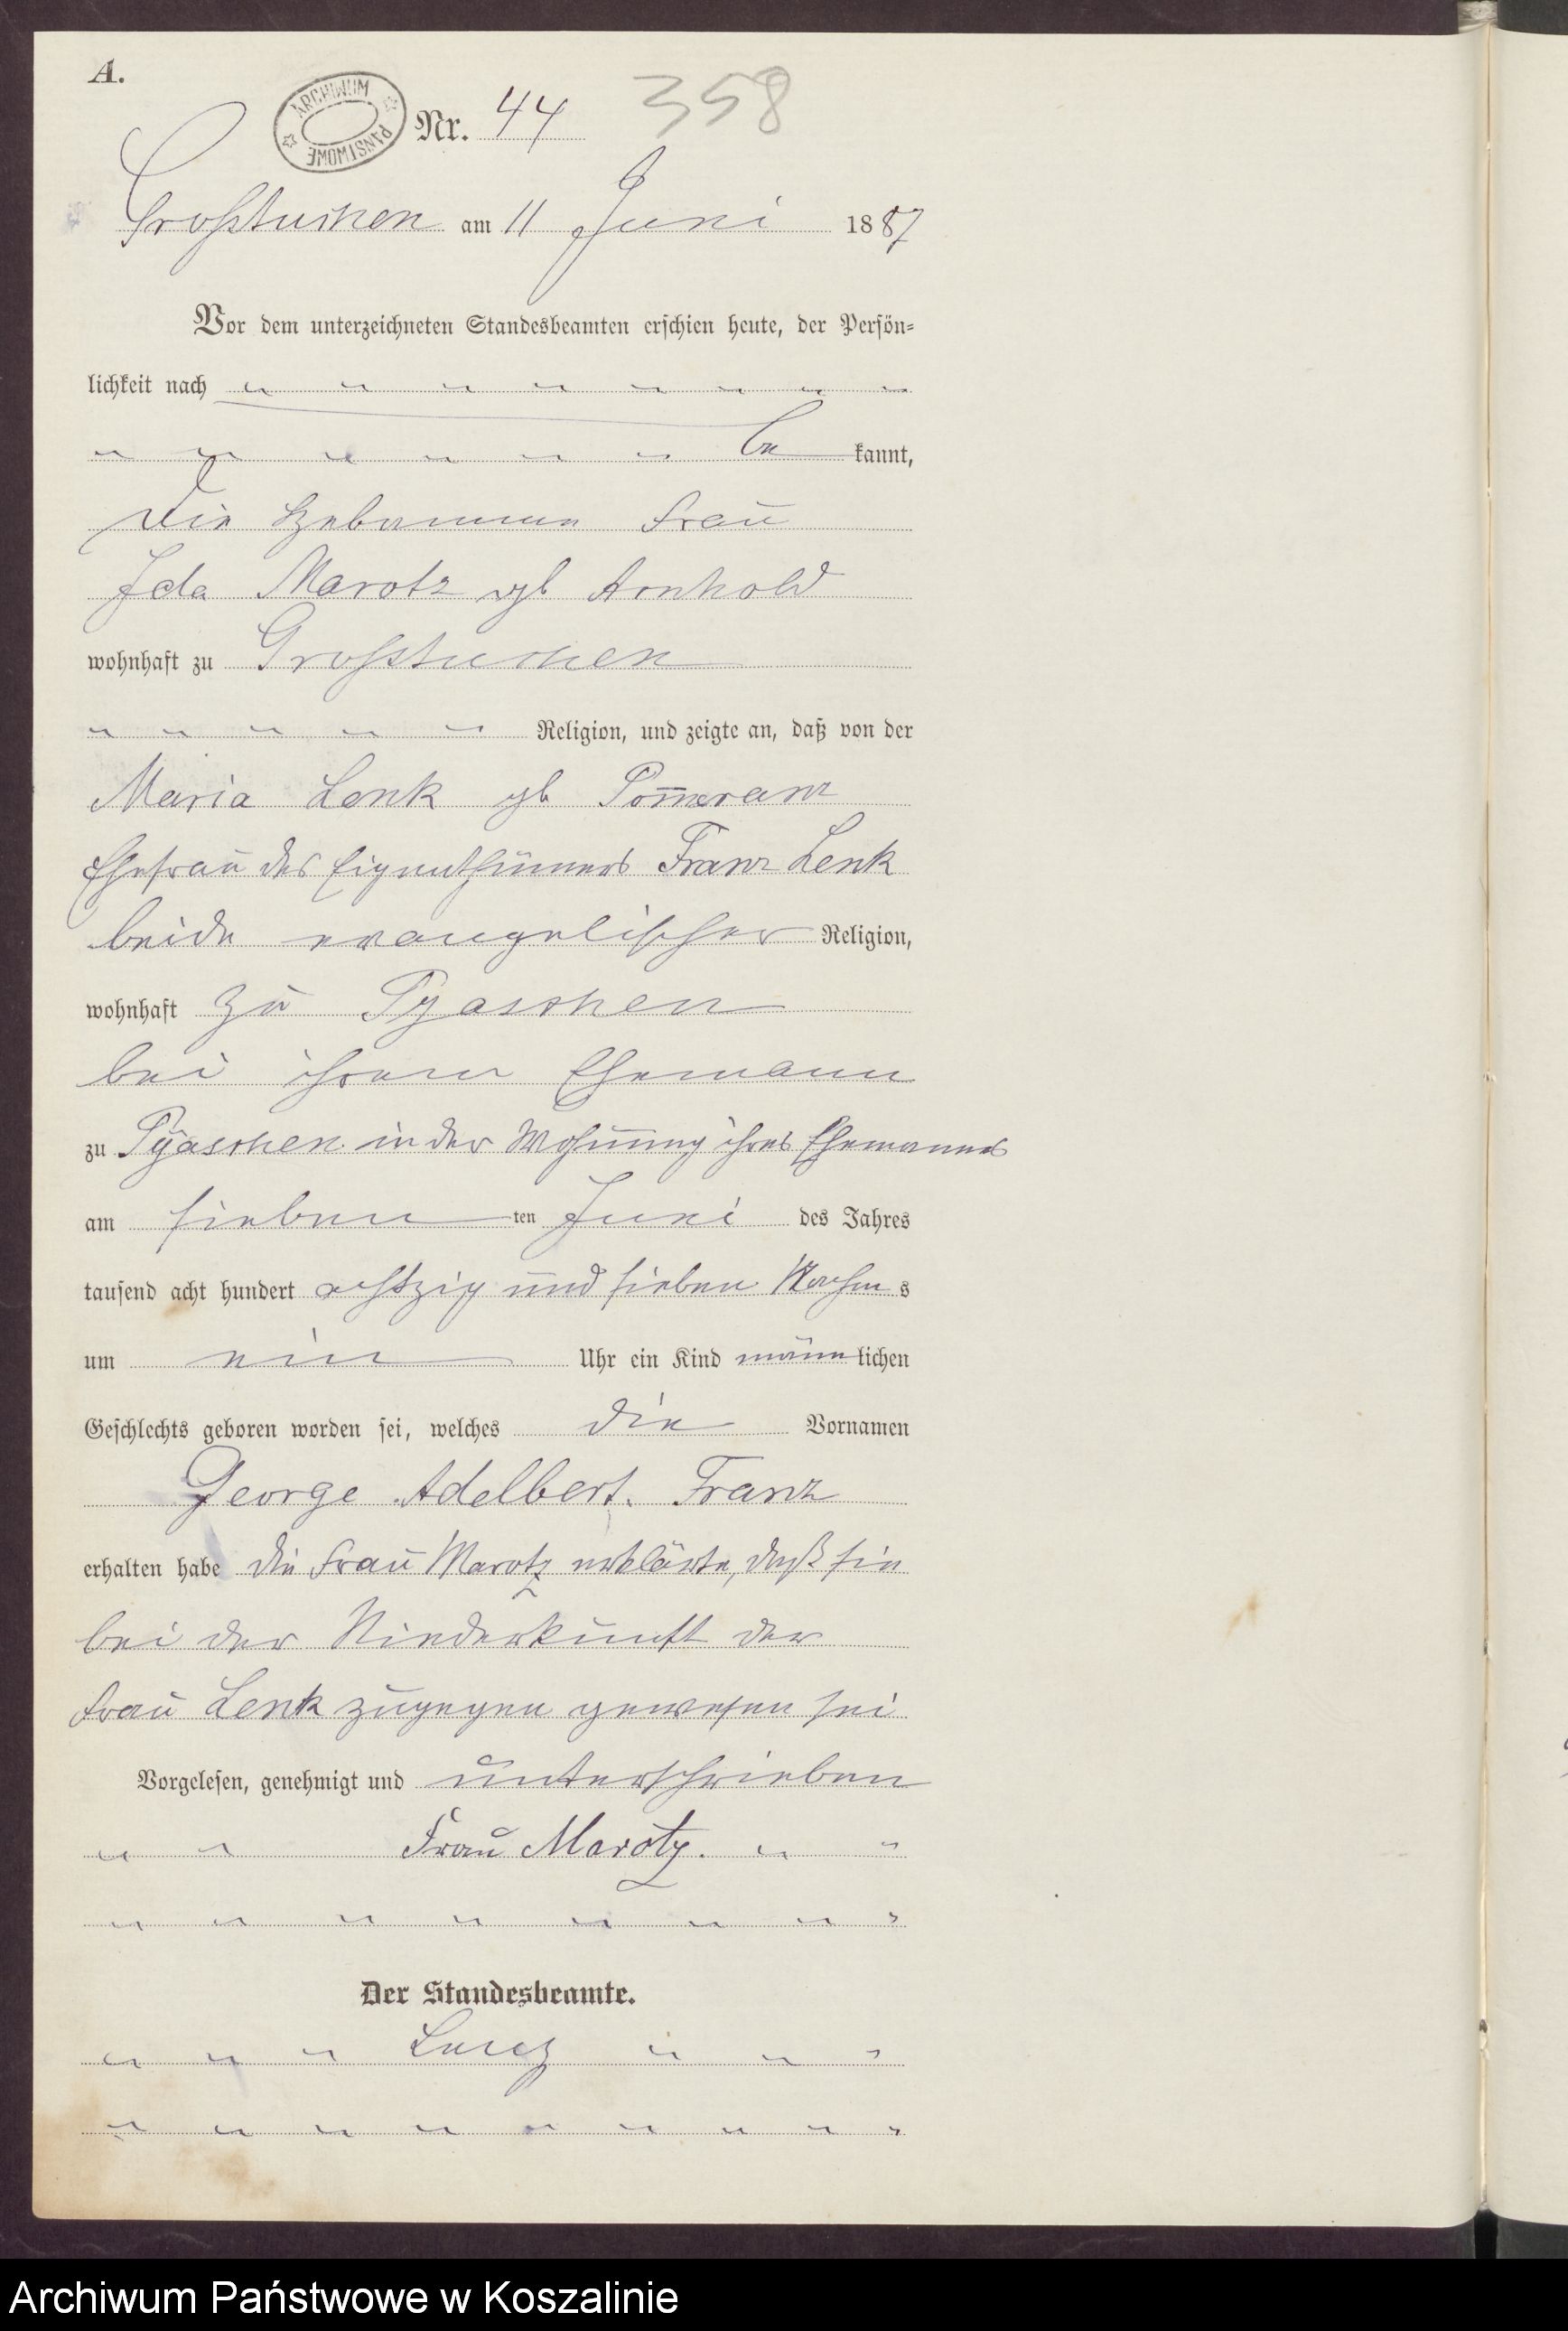 A.
ARCHIWUM PAŃSTWOWE
Nr. 44 358
Großtuchen am 11 Juni 1887
Vor dem unterzeichneten Standesbeamten erschien heute, der Persön=
lichkeit nach
be kannt,
Die Hebamme Frau
Ida Marotz gb Arnhold
wohnhaft zu Großtuchen
Religion, und zeigte an, daß von der
Maria Lenk gb Pom̄eranz
Ehefrau des Eigenthümers Franz Lenk
beide evangelischer Religion,
wohnhaft zu Pyaschen
bei ihrem Ehemann
zu Pyaschen in der Wohnung ihres Ehemannes
am sieben ten Juni des Jahres
tausend acht hundert achtzig und sieben Nachm s
um ein Uhr ein Kind männ lichen
Geschlechts geboren worden sei, welches die Vornamen
George Adelbert. Franz
erhalten habe Die Frau Marotz erklärte, daß sie
bei der Niederkunft der
Frau Lenk zugegen gewesen sei
Vorgelesen, genehmigt und unterschrieben
Frau Marotz.
Der Standesbeamte.
Archiwum Państwowe w Koszalinie